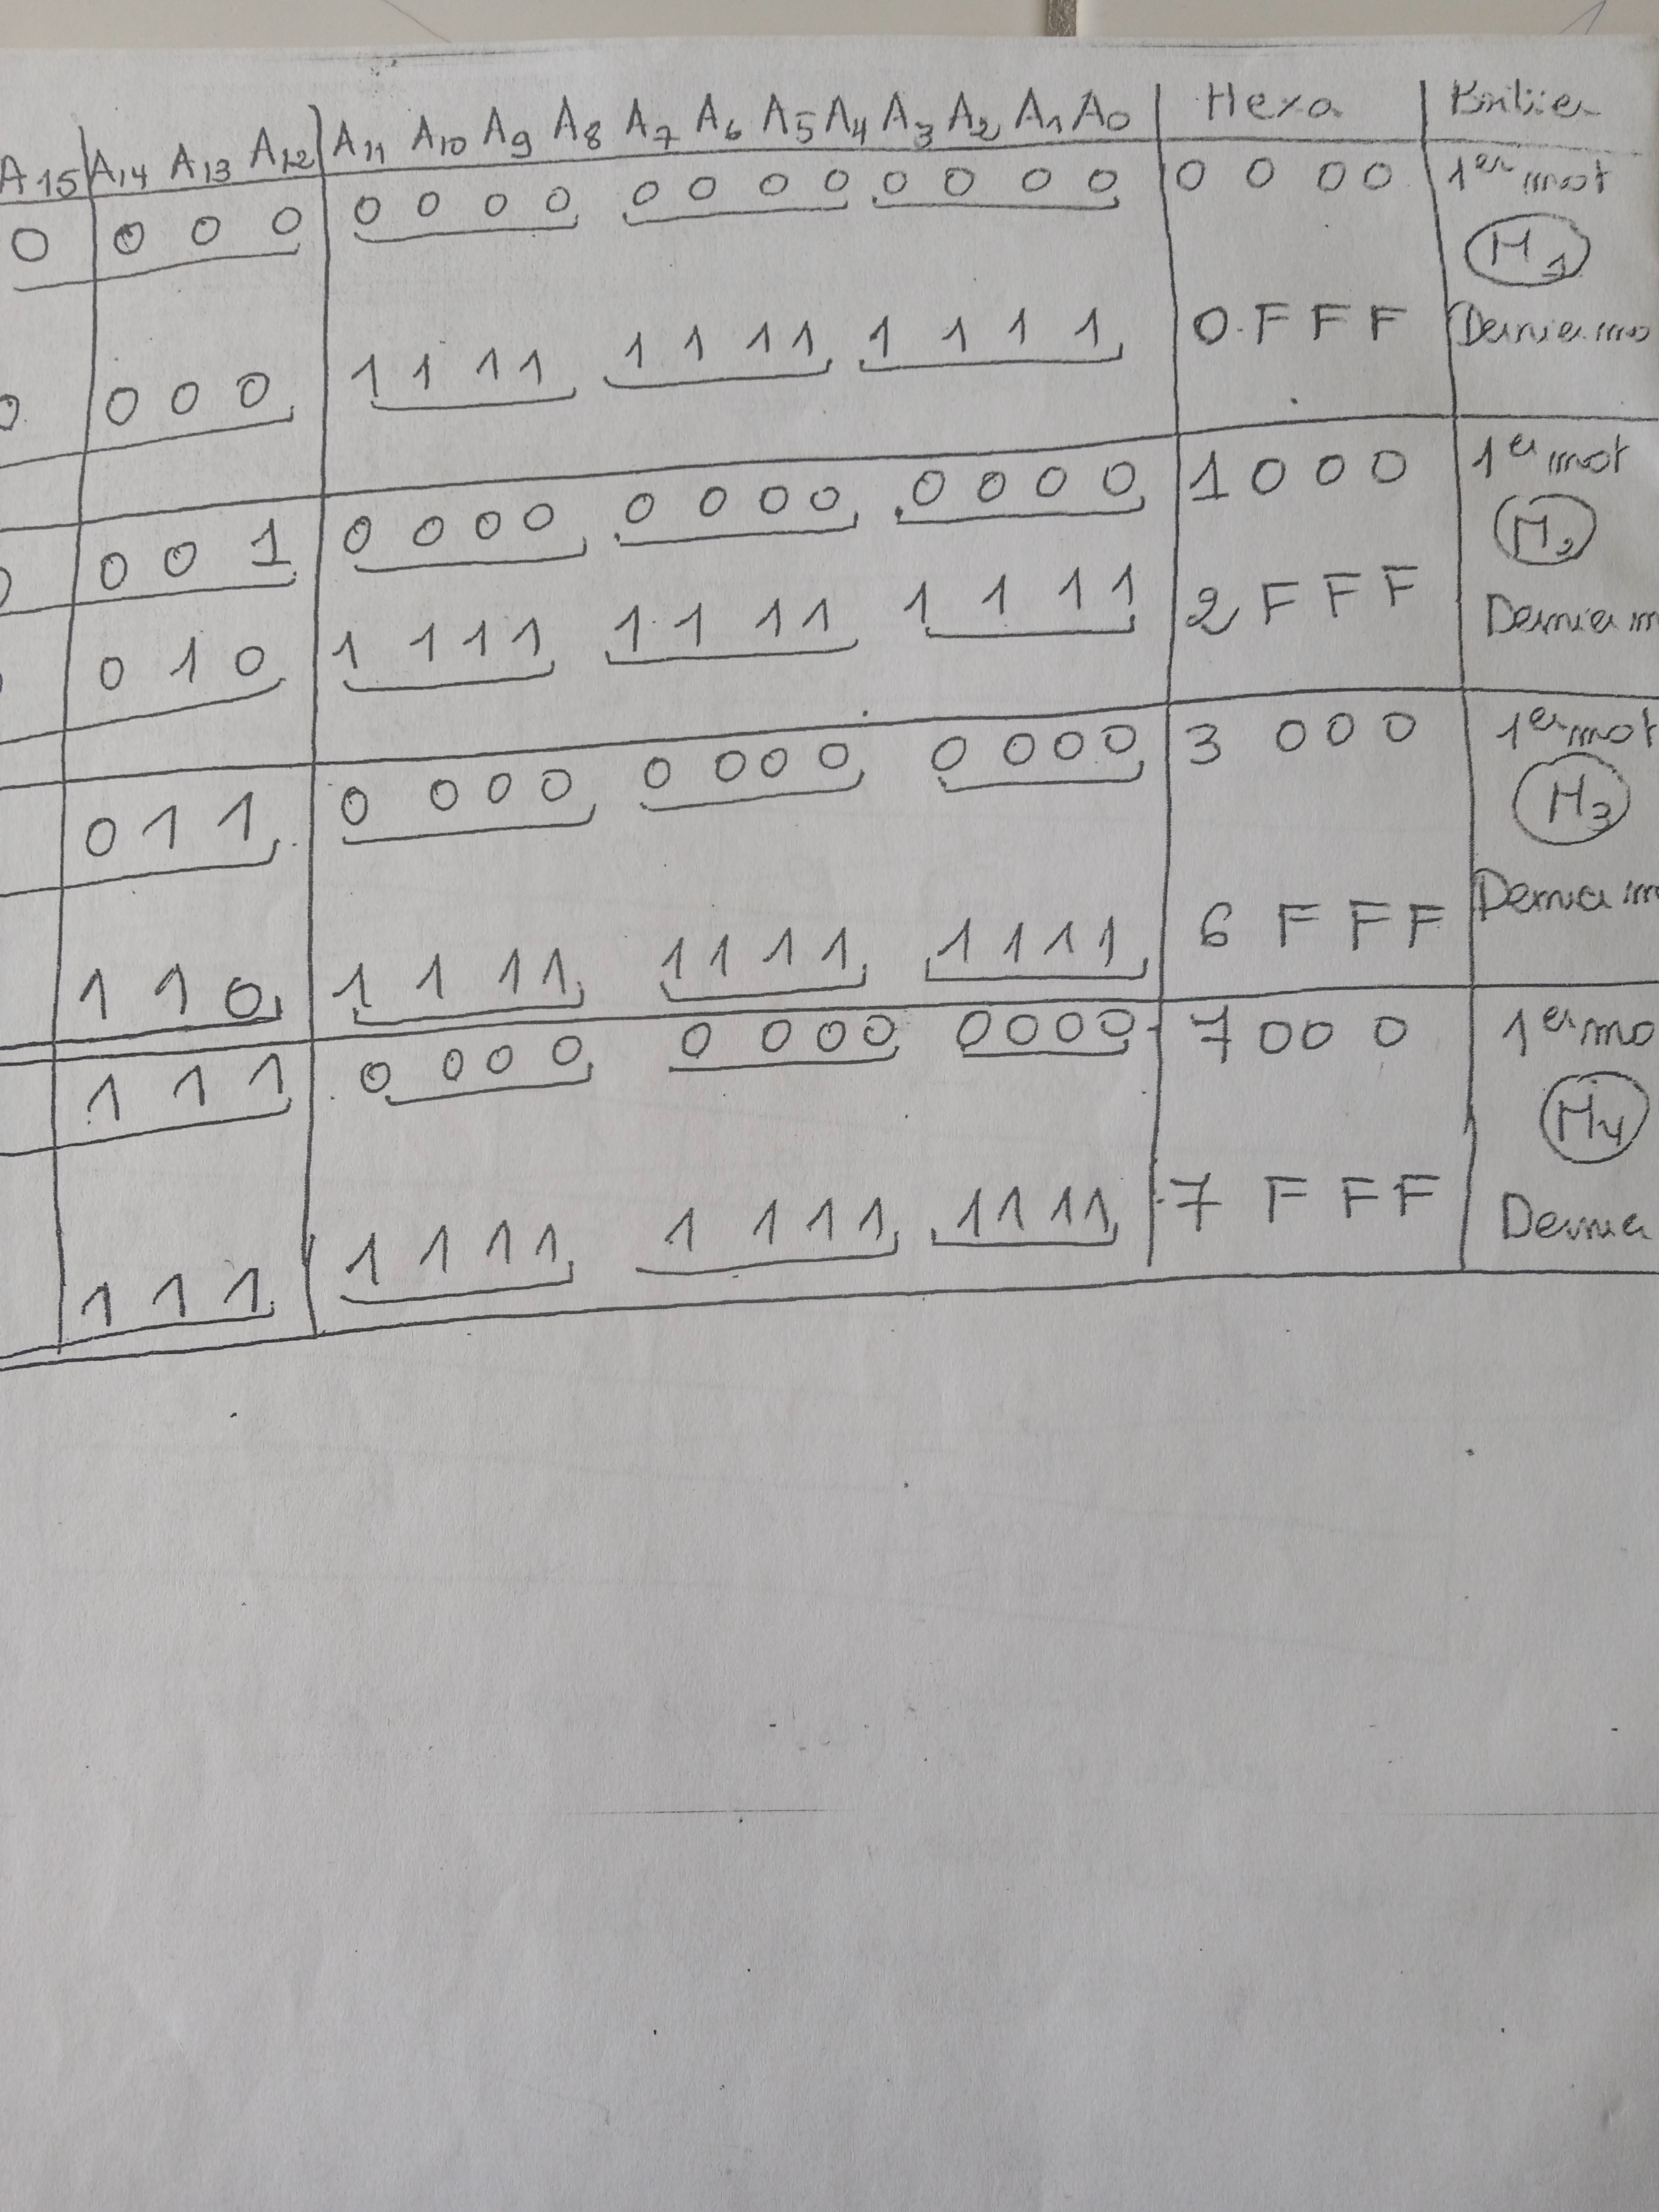 A15 A14 A13 A12 A11 A10 A9 A8 A7 A6 A5 A4 A3 A2 A1 A0 Hexa
0 0 0 0 0 0 0 0 0 0 0 0 0 0 0 0 0 0 0 0 1er mot
M1
0 0 0 0 1 1 1 1 1 1 1 1 1 1 1 1 0 F F F Dernier mo
0 0 0 1 0 0 0 0 0 0 0 0 0 0 0 0 1 0 0 0 1er mot
M2
0 0 1 0 1 1 1 1 1 1 1 1 1 1 1 1 2 F F F Dernier m
0 1 1 0 0 0 0 0 0 0 0 0 0 0 0 3 0 0 0 1er mot
M3
1 1 0 1 1 1 1 1 1 1 1 1 1 1 1 6 F F F Dernier m
1 1 1 0 0 0 0 0 0 0 0 0 0 0 0 7 0 0 0 1er mo
M4
1 1 1 1 1 1 1 1 1 1 1 1 1 1 1 7 F F F Dernier